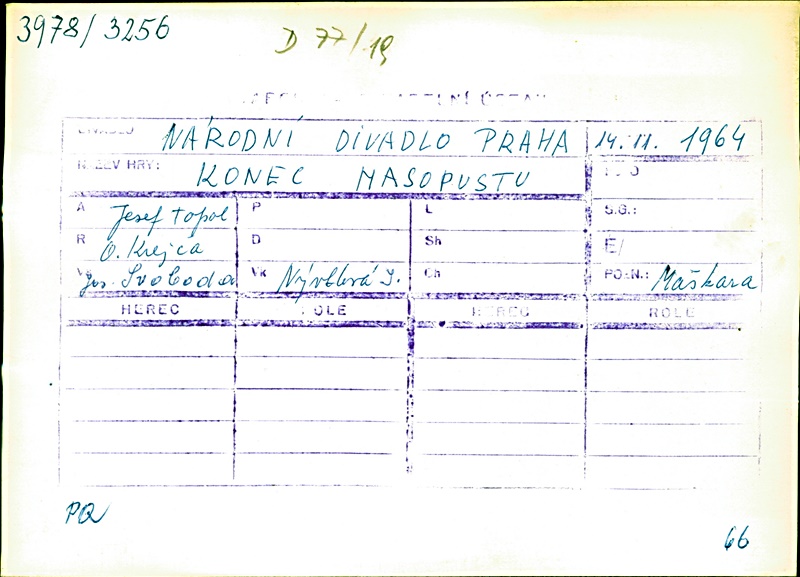 3978/3256
D 77/19
DIVADLO NÁRODNÍ DIVADLO PRAHA 14. II. 1964
NÁZEV HRY: KONEC MASOPUSTU
A Josef Topol P L S.G.:
R O. Krejča D Sh E/
Jos. Svoboda Vk Nývltová J. Ch POZN.: Maškara
HEREC ROLE HEREC ROLE
PQ
66